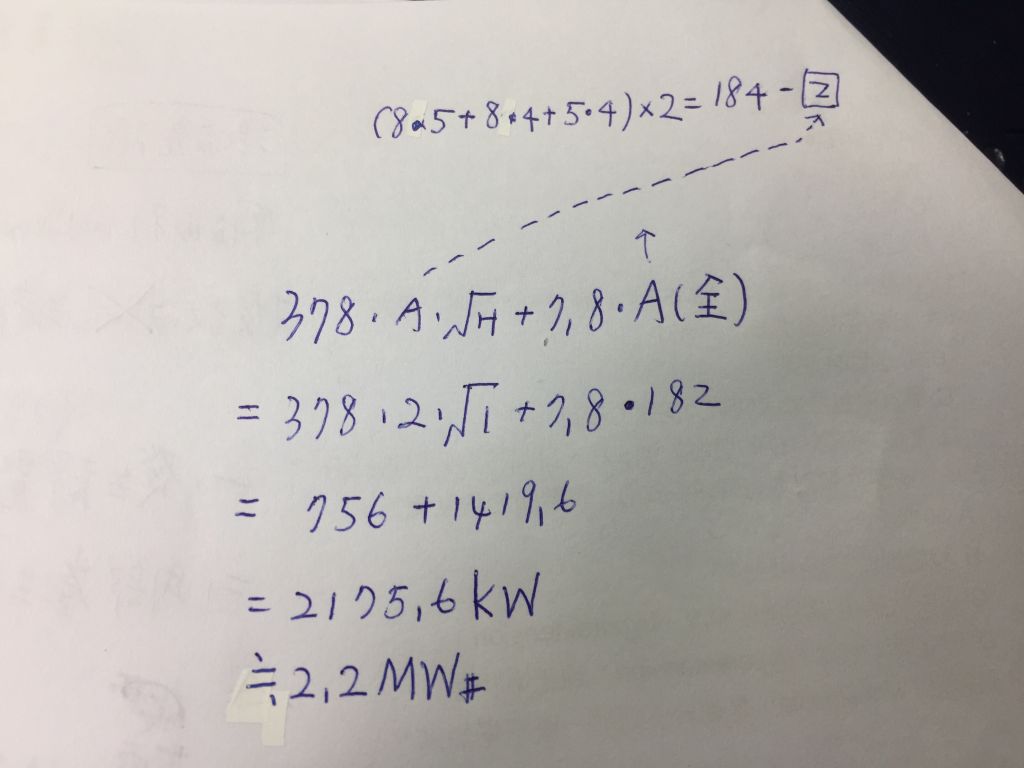 (8×5+8・4+5・4)×2=184-2
378・A・√H+7,8・A(全)
=378・2・√1+7,8・182
= 756+1419,6
=2175,6kW
≒2,2MW#